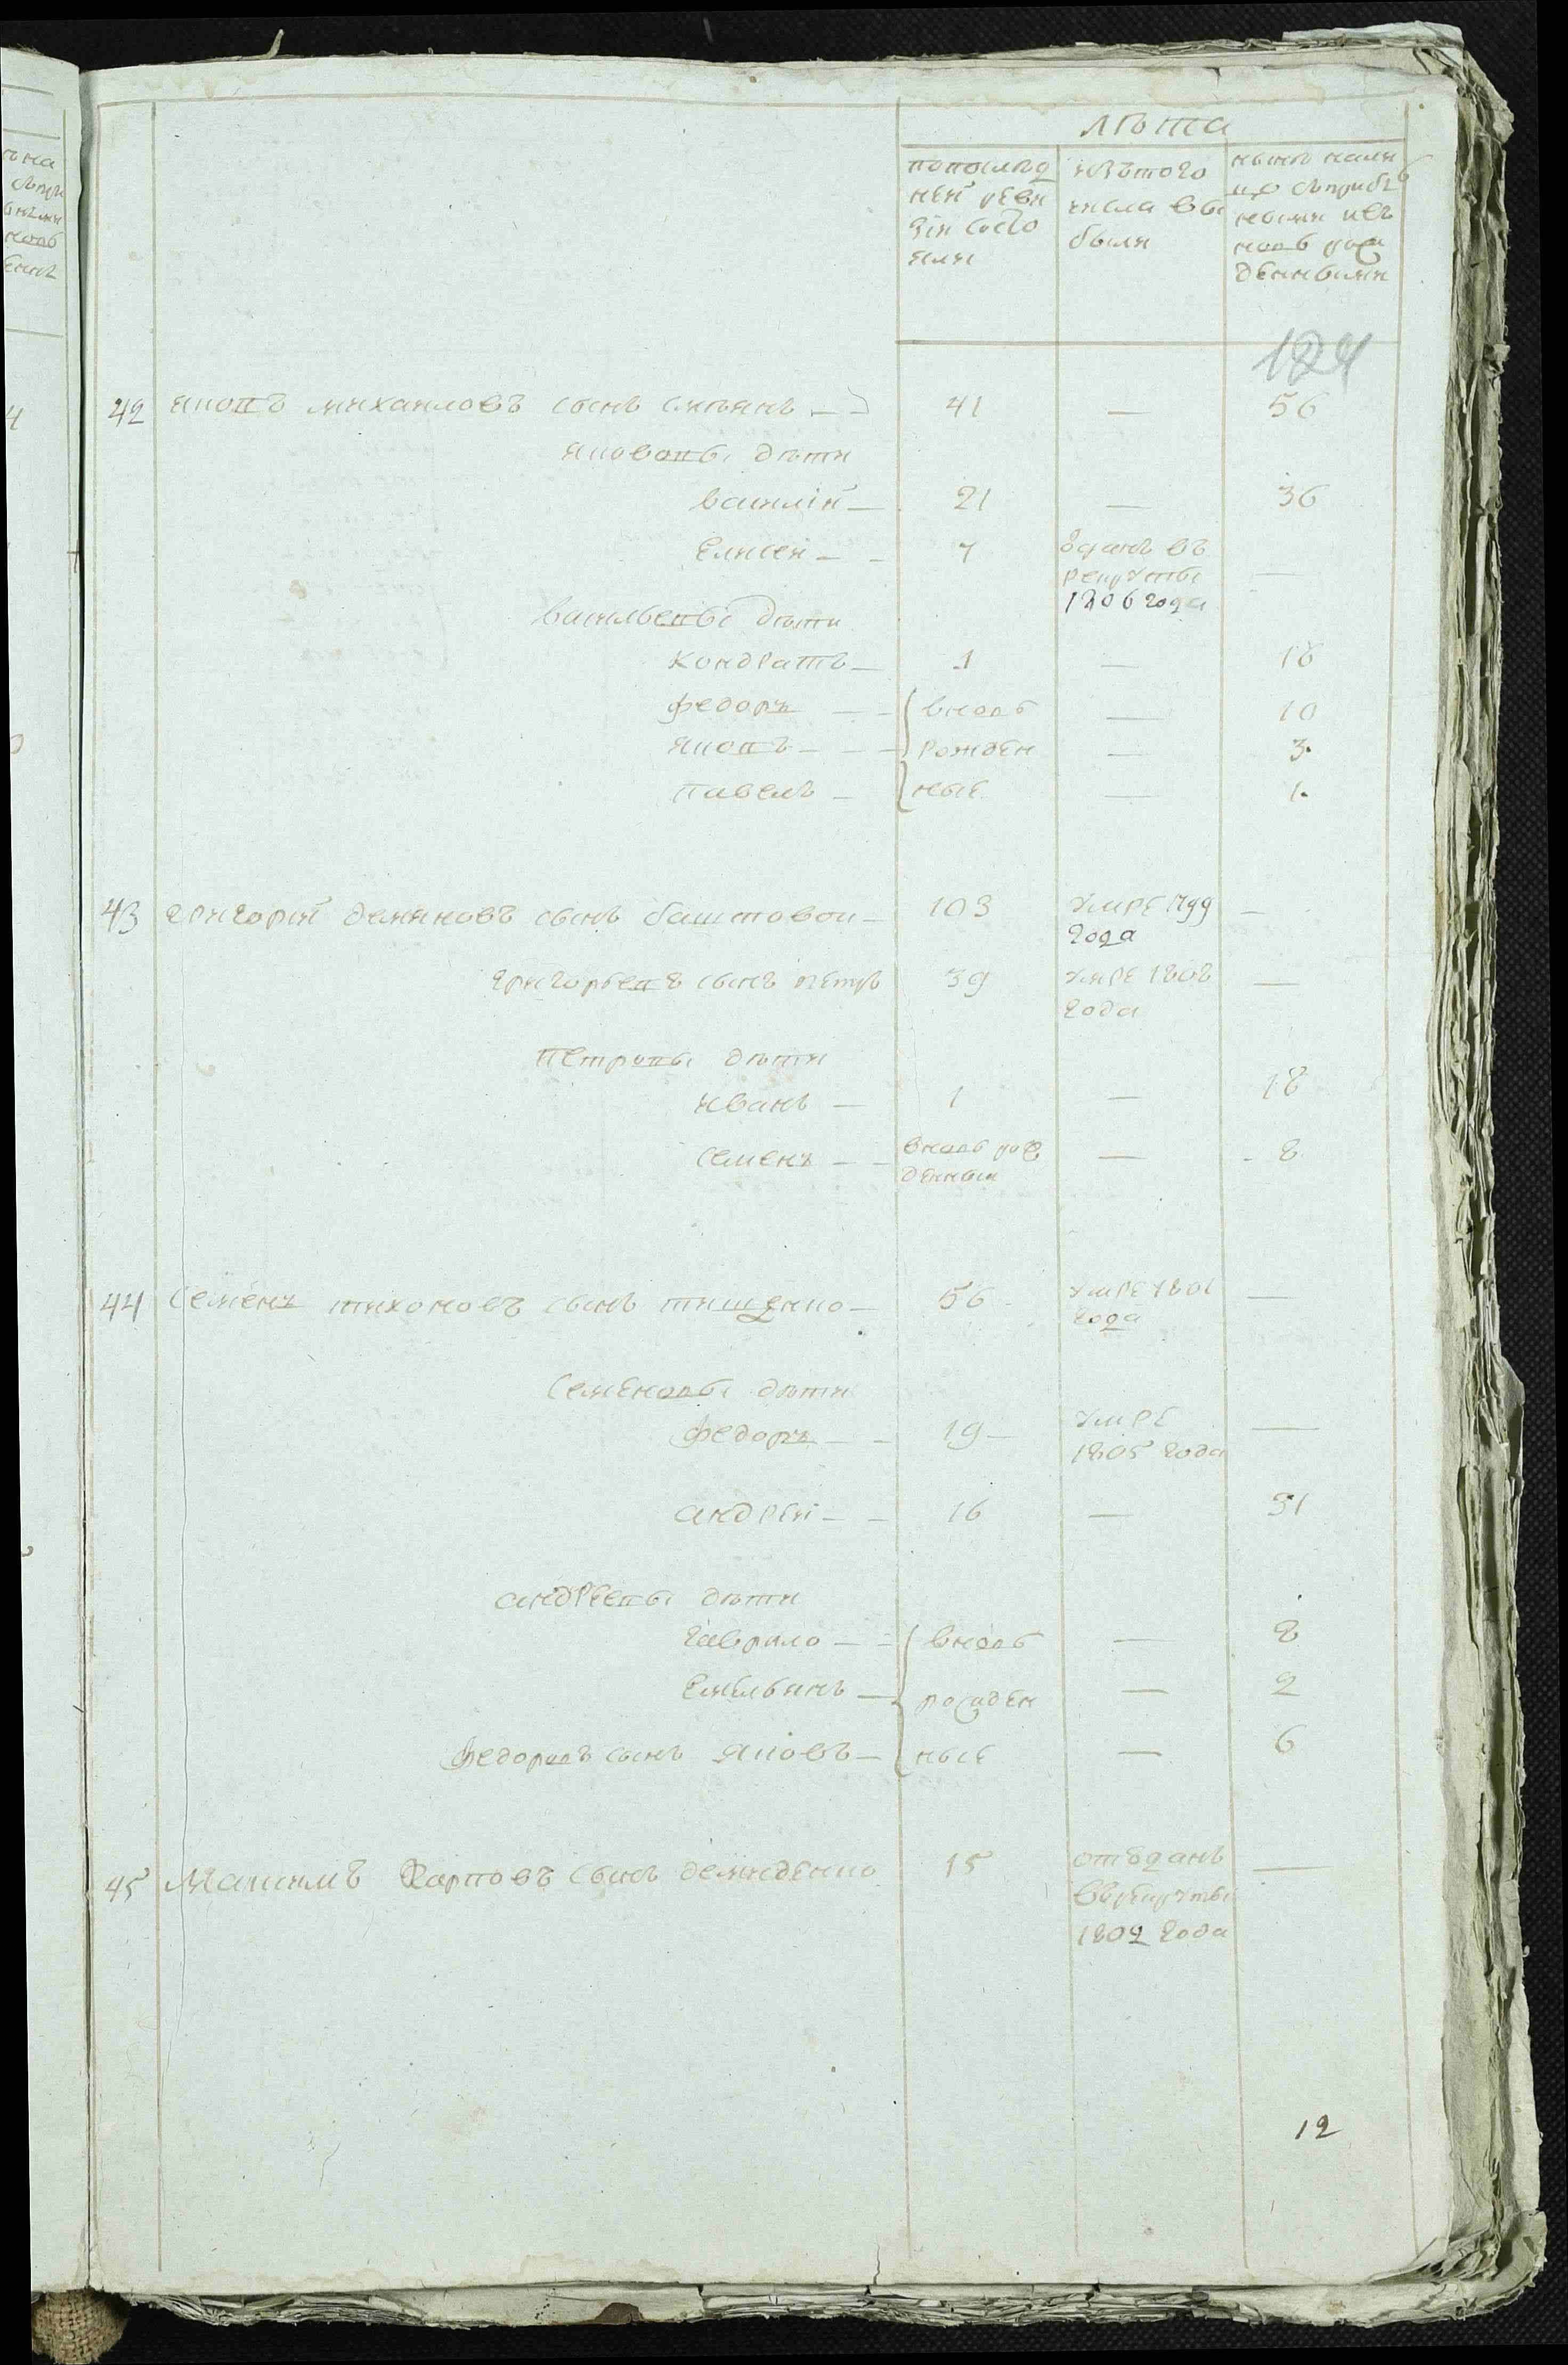 лѣта
попослѣд
ней реви
зіи состо
яли
изътого
числа вы
были
нынѣ нали
цо съприбы
ными ивъ
новь рож
денными
124
42 яковъ михаиловъ сынъ смѣянъ — 41 — 56
яковавы дѣти
василій — 21 — 36
Елисей — — 7 ѿданъ въ —
рекруты
1806 года
васильевы дѣти
Кондратъ — 1 — 18
федоръ — — вновь — 10
яковъ — — — рожден — 3
павелъ — ные — 1
43 григорій демяновъ сынъ баштовои — 103 умре 1799 —
года
григорьевъ сынъ петръ 39 умре 1808 —
года
петровы дѣти
иванъ — 1 — 18
семенъ — — вновь рож — 8
денныи
44 семенъ тихоновъ сынъ тищенко — 56 умре 1801 —
года
семеновы дѣти
федоръ — — 19 — умре —
1805 года
андрей — — 16 — 31
андреевы дѣти
гаврило — — вновь — 8
Емельянъ — рожден — 2
федоровъ сынъ яковъ — ные — 6
45 Максимъ Карповъ сынъ демиденко 15 отъданъ —
въ рекруты
1802 года
12